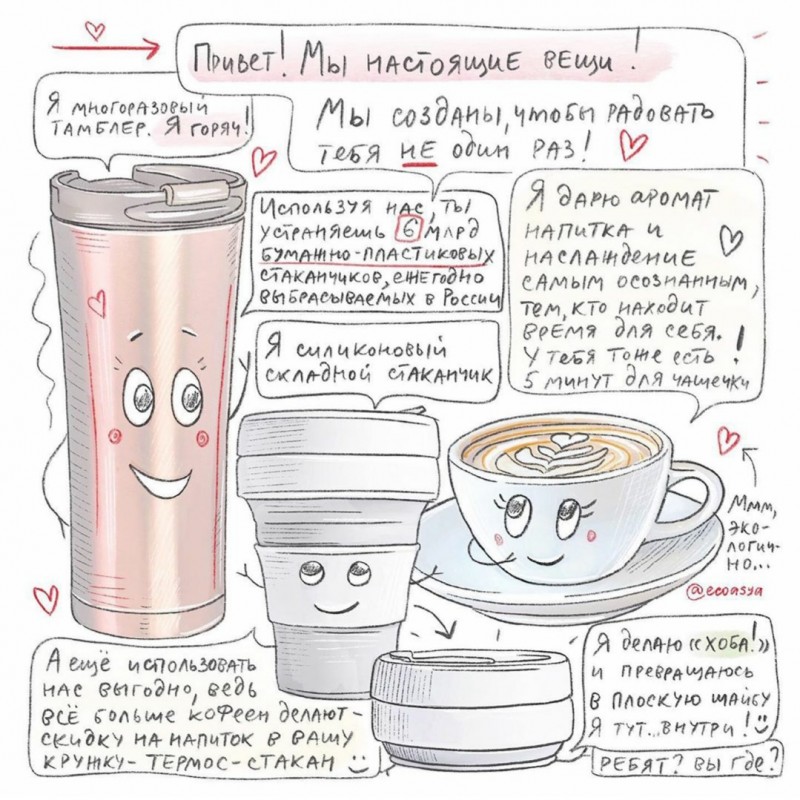 Привет! Мы настоящие вещи!
Мы созданы, чтобы радовать
тебя НЕ один раз!
Я многоразовый
тамблер. Я горяч!
Используя нас, ты
устраняешь 6 млрд
бумажно-пластиковых
стаканчиков, ежегодно
выбрасываемых в России
Я дарю аромат
напитка и
наслаждение
самым осознанным,
тем, кто находит
время для себя.
У тебя тоже есть !
5 минут для чашечки
Я силиконовый
складной стаканчик
Ммм,
эко-
логич-
но...
@ecoasya
А ещё использовать
нас выгодно, ведь
всё больше кофеен делают-
скидку на напиток в вашу
кружку-термос-стакан
Я делаю «ХОБА!»
и превращаюсь
в плоскую шайбу
Я тут...внутри!
Ребят? Вы где?